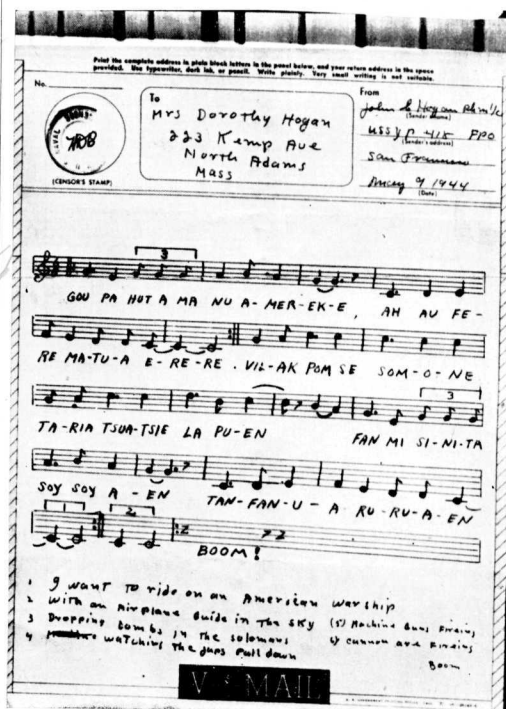 Print the complete address in plain block letters in the panel below, and your return address in the space
provided. Use typewriter, dark ink, or pencil. Write plainly. Very small writing is not suitable.
No.
(CENSOR'S STAMP)
To
Mrs Dorothy Hogan
223 Kemp Ave
North Adams
Mass
From
John Hogan
(Sender's name)
USS 418 FPO
(Sender's address)
San Francisco
9 1944
(Date)
3
GOU PA HUT A MA NU A-MER-EK-E, AH AU FE-
RE MA-TU-A E-RE-RE. VIL-AK POM SE SOM-O-NE
3
TA-RIA TSUA-TSIE LA PU-EN FAN MI SI-NI-TA
SOY SOY A-EN TAN-FAN-U-A RU-RU-A-EN
1 2
BOOM!
1 I want to ride on an American warship
2 With an Airplane Guide in The Sky (5) Machine Guns Firing
3 Dropping bombs in the solomons 6) Cannon are Firing
4 watching The Japs Pull down Boom
V MAIL